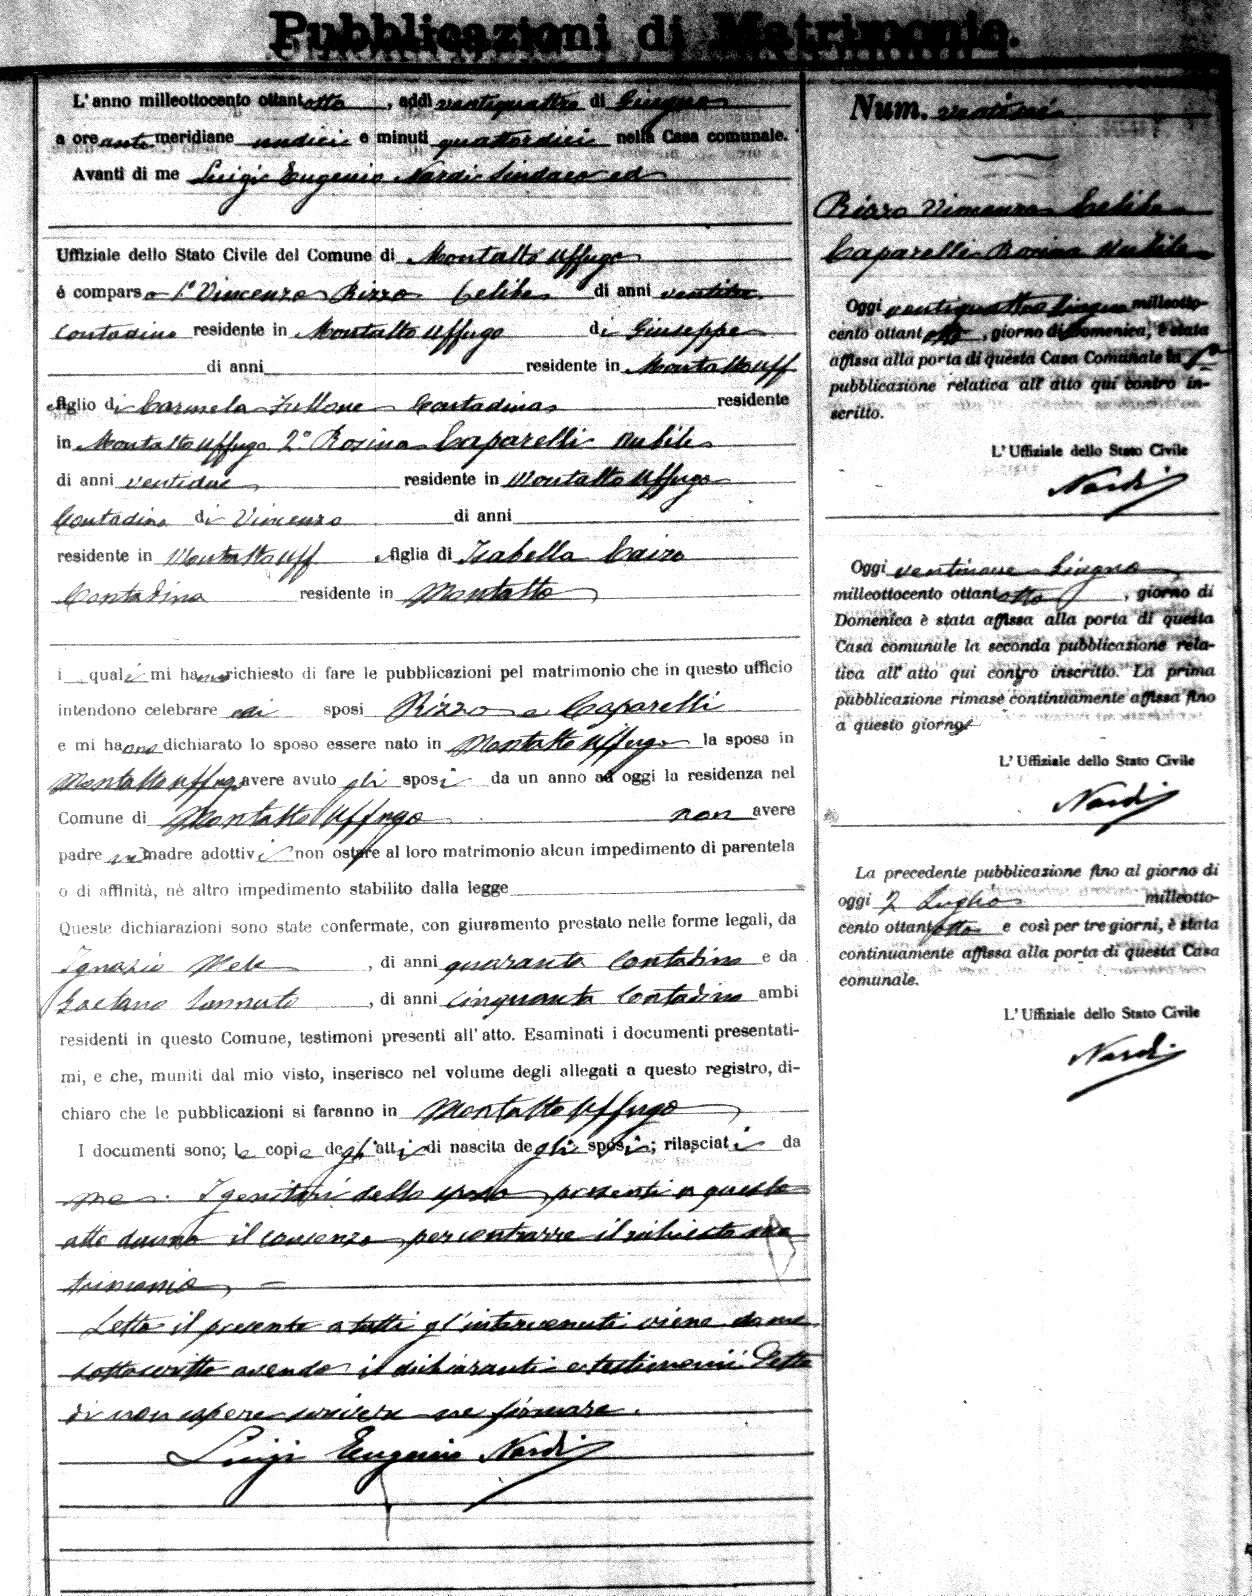 Pubblicazioni di Matrimonio.
L'anno milleottocento ottantotto, addì ventiquattro di Giugno
a ore antimeridiane undici e minuti quattordici nella Casa comunale.
Avanti di me Luigi Eugenio Nardi Sindaco ed
Uffiziale dello Stato Civile del Comune di Montalto Uffugo
é comparso 1º Vincenzo Rizzo Celibe di anni
Contadino residente in Montalto Uffugo di Giuseppe
di anni residente in Montalto Uff
figlio di Carmela Contadina residente
in Montalto Uffugo 2º Rosina Caparelli nubile
di anni ventidue residente in Montalto Uffugo
Contadina di Vincenzo di anni
residente in Montalto Uff figlia di Isabella Cairo
Contadina residente in Montalto
i quali mi hanno richiesto di fare le pubblicazioni pel matrimonio che in questo ufficio
intendono celebrare sposi Rizzo e Caparelli
e mi hanno dichiarato lo sposo essere nato in Montalto Uffugo la sposa in
Montalto Uffugo avere avuto gli sposi da un anno ad oggi la residenza nel
Comune di Montalto Uffugo non avere
padre nè madre adottivi non ostare al loro matrimonio alcun impedimento di parentela
o di affinità, nè altro impedimento stabilito dalla legge
Queste dichiarazioni sono state confermate, con giuramento prestato nelle forme legali, da
Ignazio Mele, di anni quaranta Contadino e da
Gaetano Iannuto, di anni cinquanta Contadino ambi
residenti in questo Comune, testimoni presenti all'atto. Esaminati i documenti presentati-
mi, e che, muniti dal mio visto, inserisco nel volume degli allegati a questo registro, di-
chiaro che le pubblicazioni si faranno in Montalto Uffugo
I documenti sono; le copie degli atti di nascita degli sposi; rilasciati da
me. I genitori dello sposo presenti a questo
atto danno il consenzo per contrarre il richiesto ma
trimonio
Letto il presente a tutti gl'intervenuti viene da me
sottoscritto avendo i dichiaranti e testimonii detto
di non sapere scrivere ne firmare.
Luigi Eugenio Nardi
Num. ventisei
Rizzo Vincenzo Celibe
Caparelli Rosina Nubile
Oggi ventiquattro Giugno milleotto-
cento ottantotto, giorno di Domenica, è stata
affissa alla porta di questa Casa Comunale la 1ª
pubblicazione relativa all'atto qui contro in-
scritto.
L'Uffiziale dello Stato Civile
Nardi
Oggi ventinove Giugno
milleottocento ottantotto, giorno di
Domenica è stata affissa alla porta di questa
Casa comunale la seconda pubblicazione rela-
tiva all'atto qui contro inscritto. La prima
pubblicazione rimase continuamente affissa fino
a questo giorno
L'Uffiziale dello Stato Civile
Nardi
La precedente pubblicazione fino al giorno di
oggi 2 Luglio milleotto-
cento ottantotto e così per tre giorni, è stata
continuamente affissa alla porta di questa Casa
comunale.
L'Uffiziale dello Stato Civile
Nardi